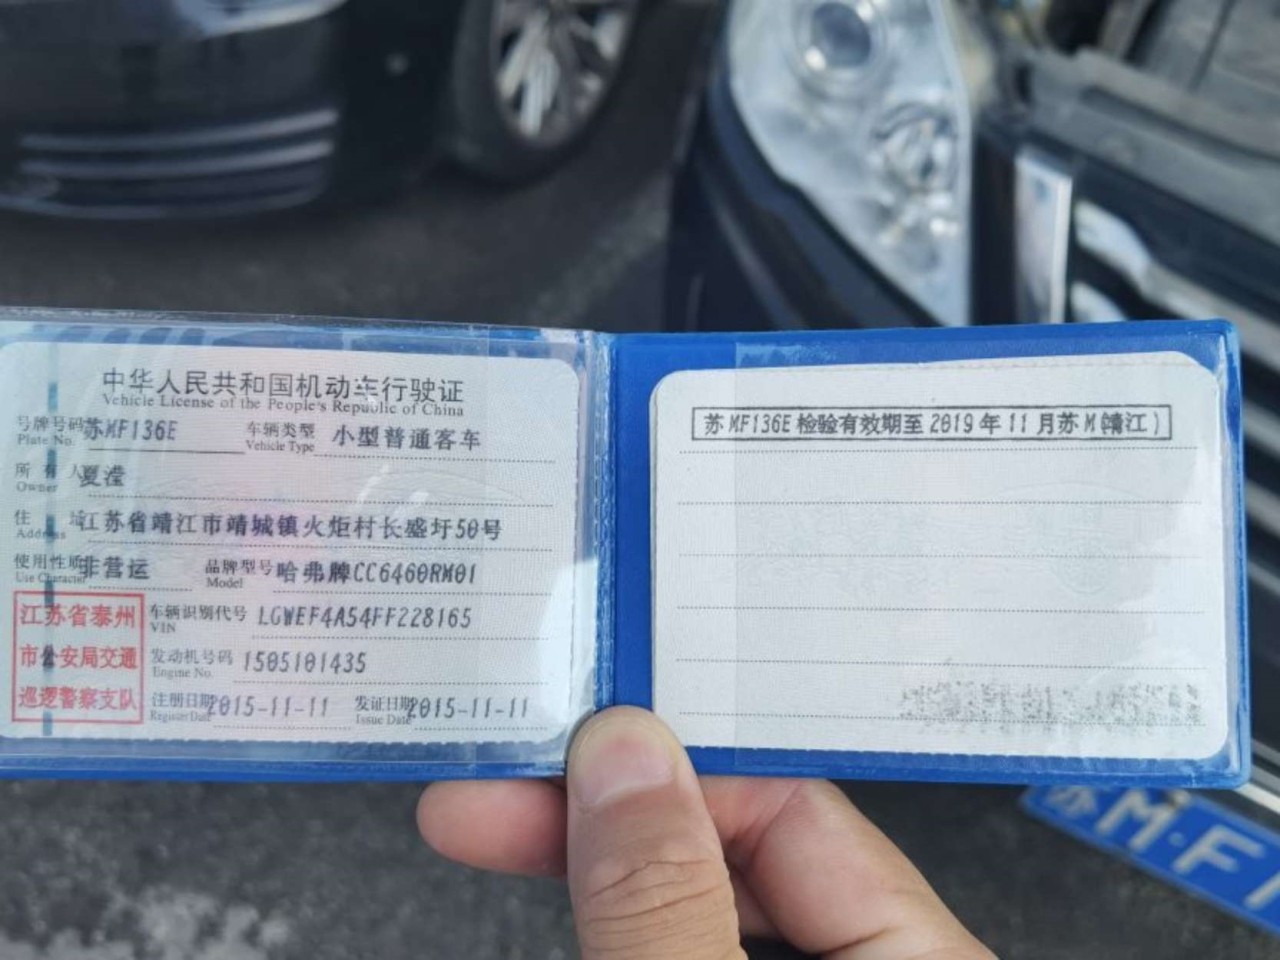 中华人民共和国机动车行驶证
Vehicle License of the People's Republic of China
号牌号码 苏MF136E 车辆类型 小型普通客车
Plate No. Vehicle Type
所有人 夏滢
Owner
住址 江苏省靖江市靖城镇火炬村长盛圩50号
Address
使用性质 非营运 品牌型号 哈弗牌CC6460RM01
Use Character Model
江苏省泰州
市公安局交通
巡逻警察支队
车辆识别代号 LGWEF4A54FF228165
VIN
发动机号码 1505101435
Engine No.
注册日期 2015-11-11 发证日期 2015-11-11
Register Date Issue Date
苏MF136E检验有效期至2019年11月苏M(靖江)
苏M·F1